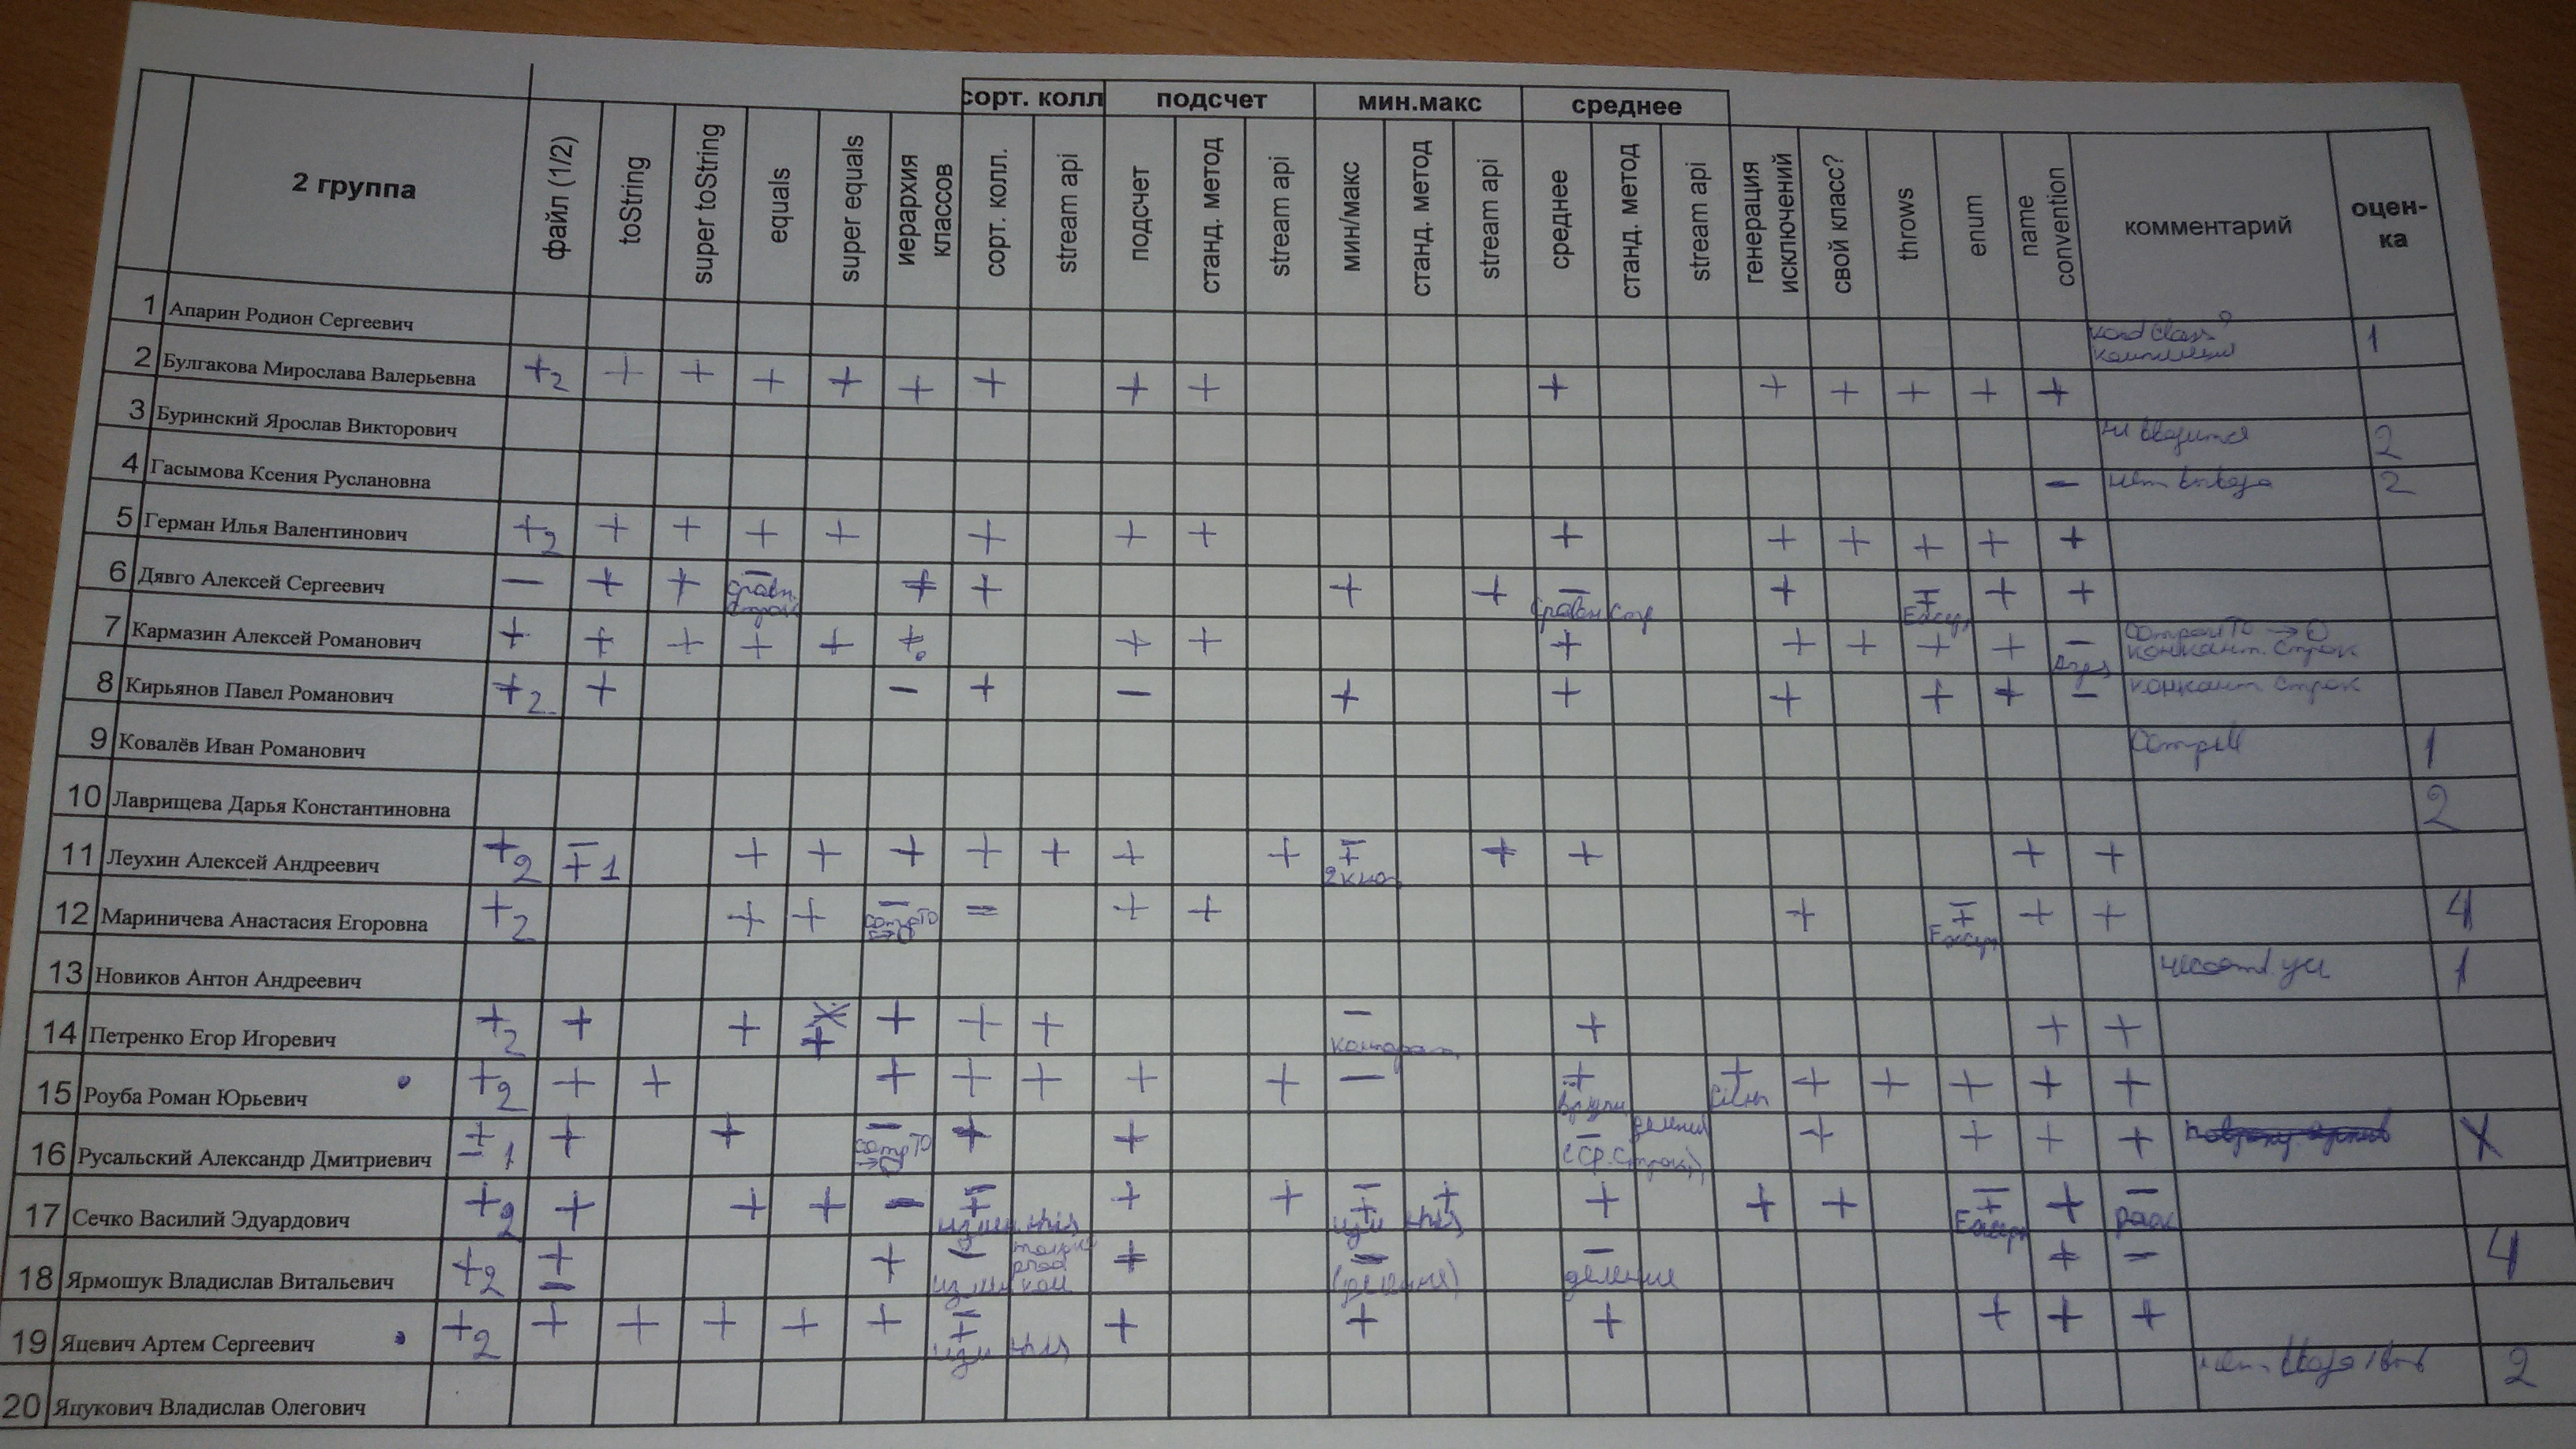 сорт. колл подсчет мин.макс среднее
2 группа файл (1/2) toString super toString equals super equals иерархия классов сорт. колл. stream api подсчет станд. метод stream api мин/макс станд. метод stream api среднее станд. метод stream api генерация исключений свой класс? throws enum name convention комментарий оцен-ка
1 Апарин Родион Сергеевич 1
2 Булгакова Мирослава Валерьевна +2 + + + + + + + + + + + + + +
3 Буринский Ярослав Викторович 2
4 Гасымова Ксения Руслановна − нет 2
5 Герман Илья Валентинович +2 + + + + + + + + + + + + +
6 Дявго Алексей Сергеевич − + + − сравн. строк + + + + − сравн стр + + +
7 Кармазин Алексей Романович + + + + + + + + + + + + + − compareTo → 0
конкант. строк
8 Кирьянов Павел Романович +2 + − + − + + + + + − конкант строк
9 Ковалёв Иван Романович 1
10 Лаврищева Дарья Константиновна 2
11 Леухин Алексей Андреевич +2 ∓1 + + + + + + + ∓ + + + +
12 Мариничева Анастасия Егоровна +2 + + − compTO → 0 = + + + ∓ + + 4
13 Новиков Антон Андреевич 1
14 Петренко Егор Игоревич +2 + + + + + + − + + +
15 Роуба Роман Юрьевич +2 + + + + + + + − + + + + + + +
16 Русальский Александр Дмитриевич ±1 + + − compTO → 0 + + − (ср. строк) деление + + + +
17 Сечко Василий Эдуардович +2 + + + − ∓ this + + ∓ this + + + + ∓ + −
18 Ярмошук Владислав Витальевич +2 ± + − + − (деление) − деление + − 4
19 Яцевич Артем Сергеевич +2 + + + + + ∓ this + + + + + +
20 Яцукович Владислав Олегович нет 2